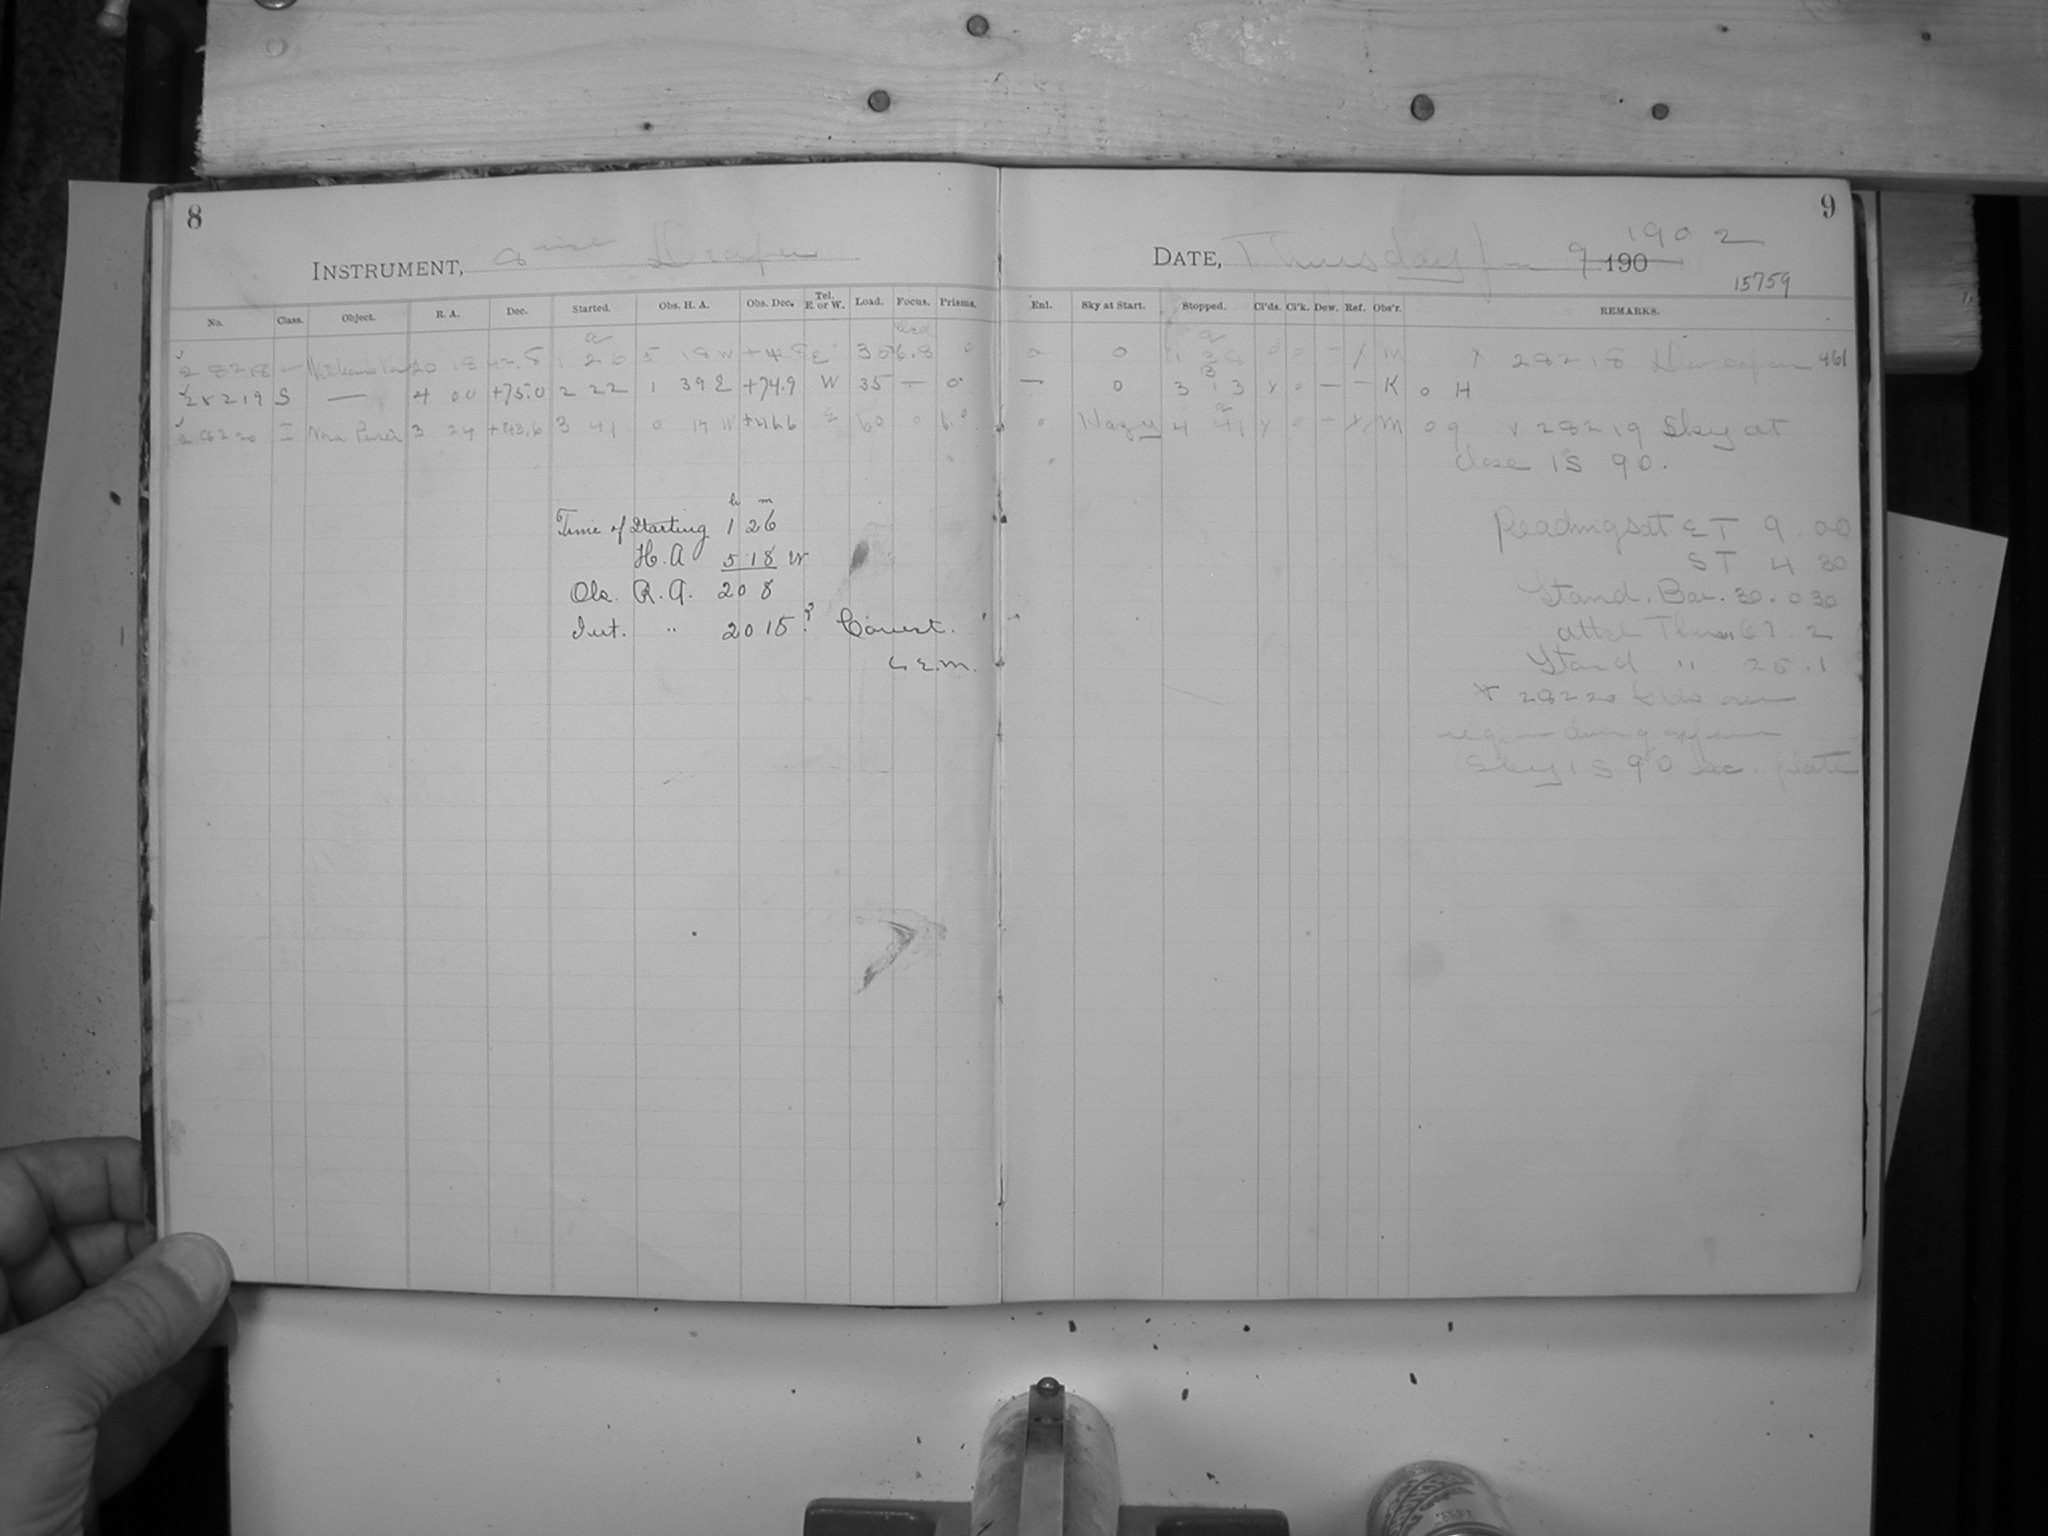 8
9
INSTRUMENT, 8 inch Draper
DATE, Thursday Jan 9 190 1902
15759
No. Class. Object. R. A. Dec. Started. Obs. H. A. Obs. Dec. Tel. E. or W. Load. Focus. Prisms. Enl. Sky at Start. Stopped. Cl'ds. Cl'k. Dew. Ref. Obs'r. REMARKS.
28218 — 20 18 1 26 5 18 W E 35 6.8 0 0 0 1 0 0 — X M X 28218 461
28219 S — 4 00 +75.0 2 22 1 39 E +74.9 W 35 — 0 — 0 3 13 X 0 — — K 0 H
28220 I Nova Persei 3 24 +43.6 3 41 0 17 W E 60 0 0 Hazy 4 41 X 0 — X M 0 9 X 28219 Sky at
close IS 90.
h m
Time of Starting 1 26
H. A 5 18 W
Obs. R. A. 20 8
Int. " 20 15? Const.
Readings at ET 9.00
ST 4 30
Stand. Bar. 30.030
Att'd Ther. 67.2
Stand " 25.1
X 28220 Clds over
region during exposure
Sky IS 90 sec. plate